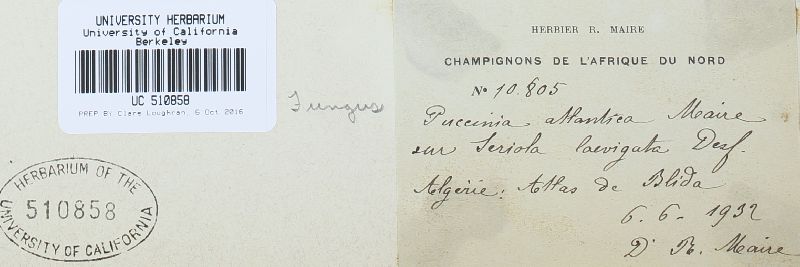 UNIVERSITY HERBARIUM
University of California
Berkeley
UC 510858
PREP BY Clare Loughran, 5 Oct 2016
Fungus
HERBARIUM OF THE
510858
UNIVERSITY OF CALIFORNIA
HERBIER R. MAIRE
CHAMPIGNONS DE L'AFRIQUE DU NORD
No 10.805
Puccinia atlantica Maire
sur Seriola laevigata Desf.
Algérie: Atlas de Blida
6. 6 - 1932
Dr R. Maire